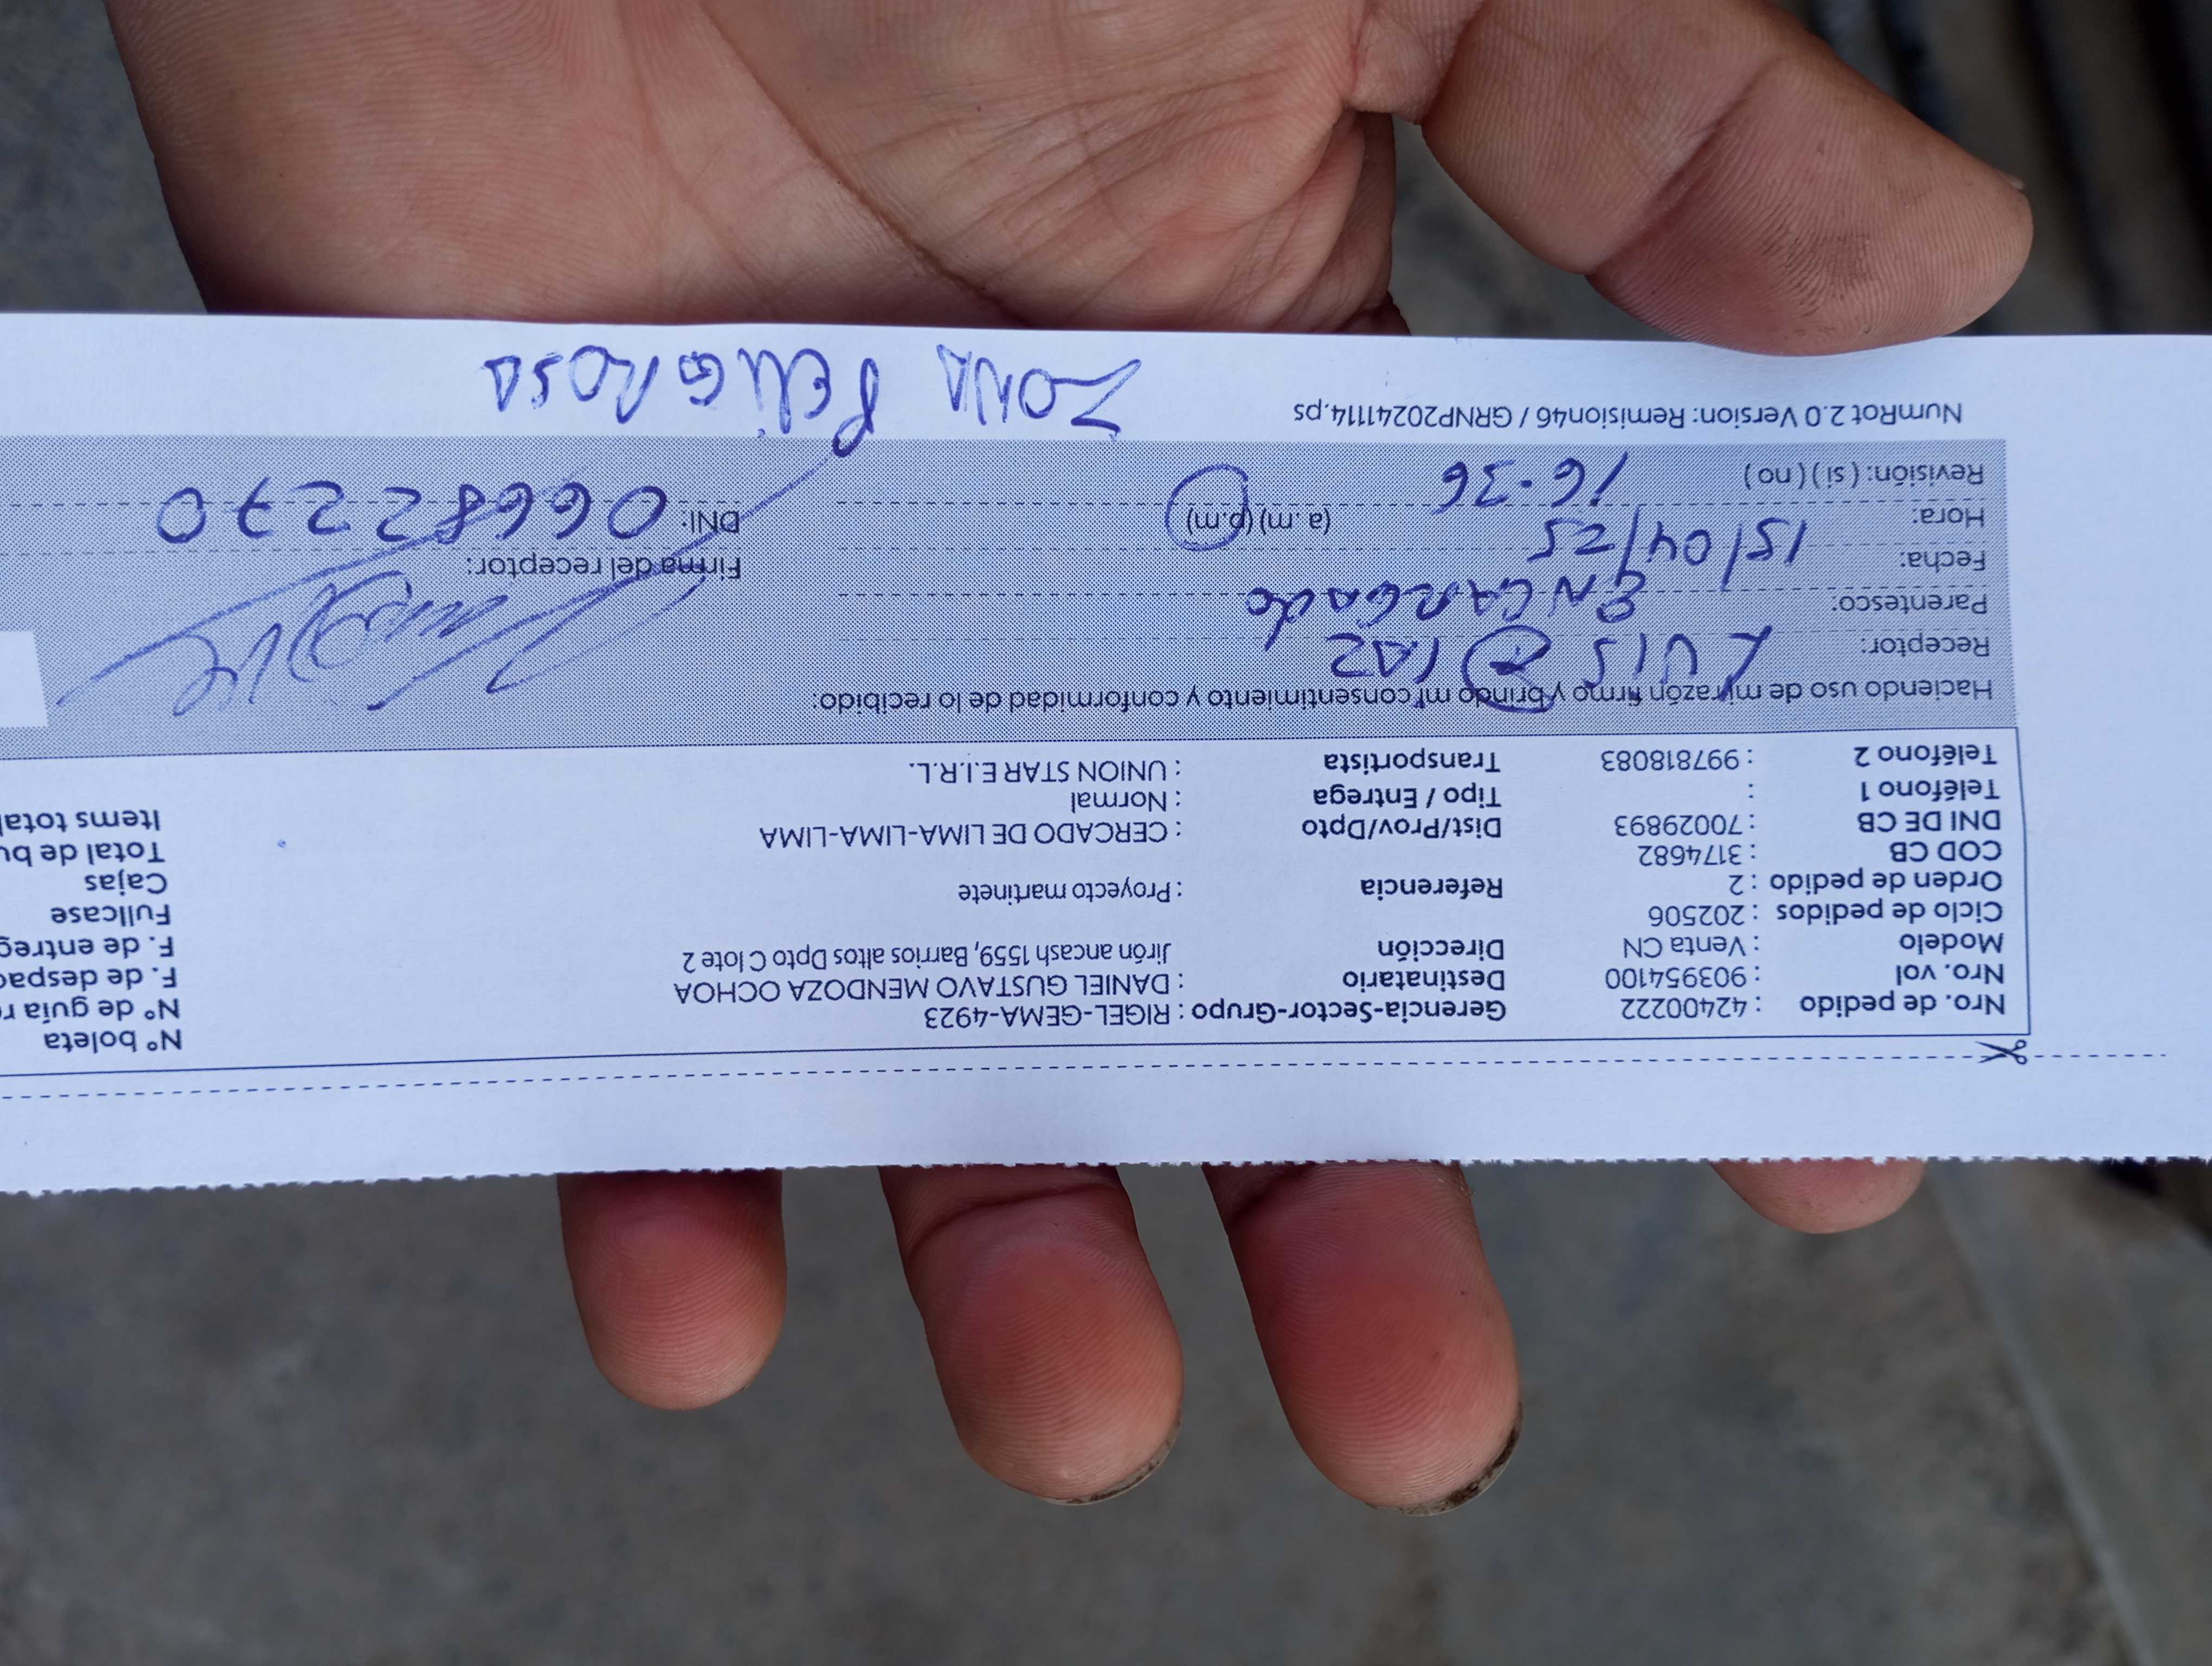 Nro. de pedido : 42400222 Gerencia-Sector-Grupo : RIGEL-GEMA-4923 N° boleta
Nro. vol : 903954100 Destinatario : DANIEL GUSTAVO MENDOZA OCHOA N° de guía r
Modelo : Venta CN Dirección Jirón ancash 1559, Barrios altos Dpto C lote 2 F. de despac
Ciclo de pedidos : 202506 F. de entreg
Orden de pedido : 2 Referencia : Proyecto martinete Fullcase
COD CB : 3174682 Cajas
DNI DE CB : 70029893 Dist/Prov/Dpto : CERCADO DE LIMA-LIMA-LIMA Total de bu
Teléfono 1 : Tipo / Entrega : Normal Items total
Teléfono 2 : 997818083 Transportista : UNION STAR E.I.R.L.
Haciendo uso de mi razón firmo y brindo mi consentimiento y conformidad de lo recibido:
Receptor: LUIS DIAZ
Parentesco: ENCARGADO
Fecha: 15/04/25 Firma del receptor:
Hora: 16.36 (a.m) (p.m) DNI: 06682270
Revisión: (si) (no)
NumRot 2.0 Version: Remision46 / GRNP20241114.ps
ZONA PELIGROSA